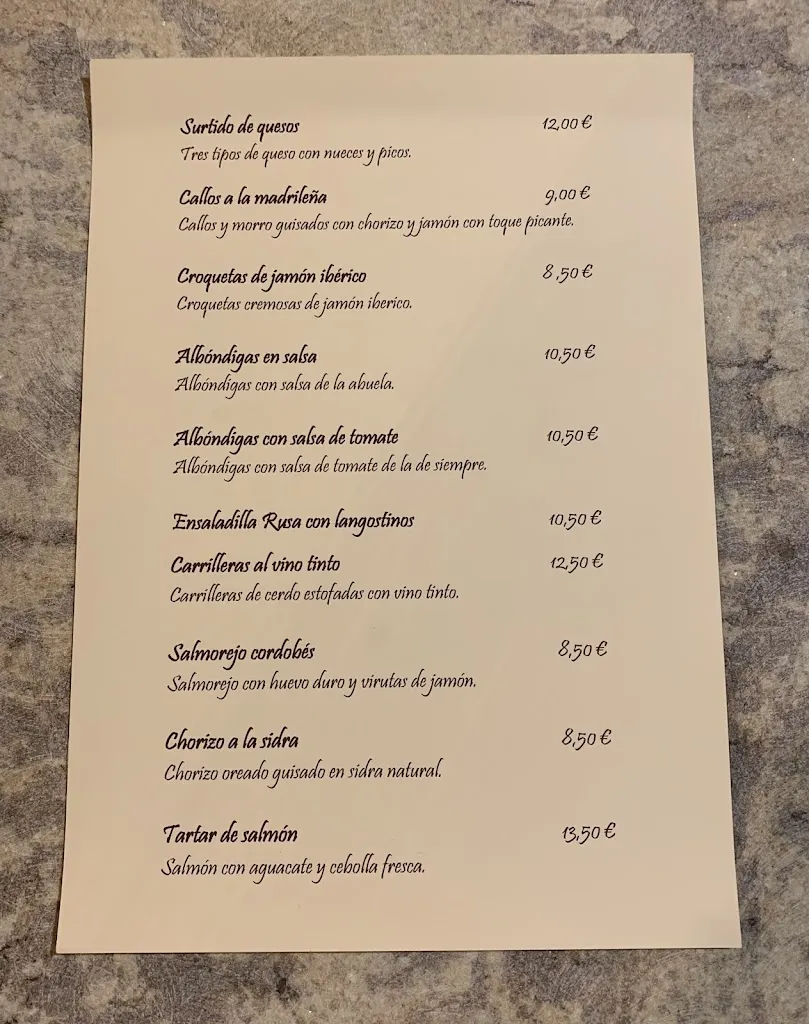 Surtido de quesos 12,00 €
Tres tipos de queso con nueces y picos.
Callos a la madrileña 9,00 €
Callos y morro guisados con chorizo y jamón con toque picante.
Croquetas de jamón ibérico 8,50 €
Croquetas cremosas de jamón iberico.
Albóndigas en salsa 10,50 €
Albóndigas con salsa de la abuela.
Albóndigas con salsa de tomate 10,50 €
Albóndigas con salsa de tomate de la de siempre.
Ensaladilla Rusa con langostinos 10,50 €
Carrilleras al vino tinto 12,50 €
Carrilleras de cerdo estofadas con vino tinto.
Salmorejo cordobés 8,50 €
Salmorejo con huevo duro y virutas de jamón.
Chorizo a la sidra 8,50 €
Chorizo oreado guisado en sidra natural.
Tartar de salmón 13,50 €
Salmón con aguacate y cebolla fresca.